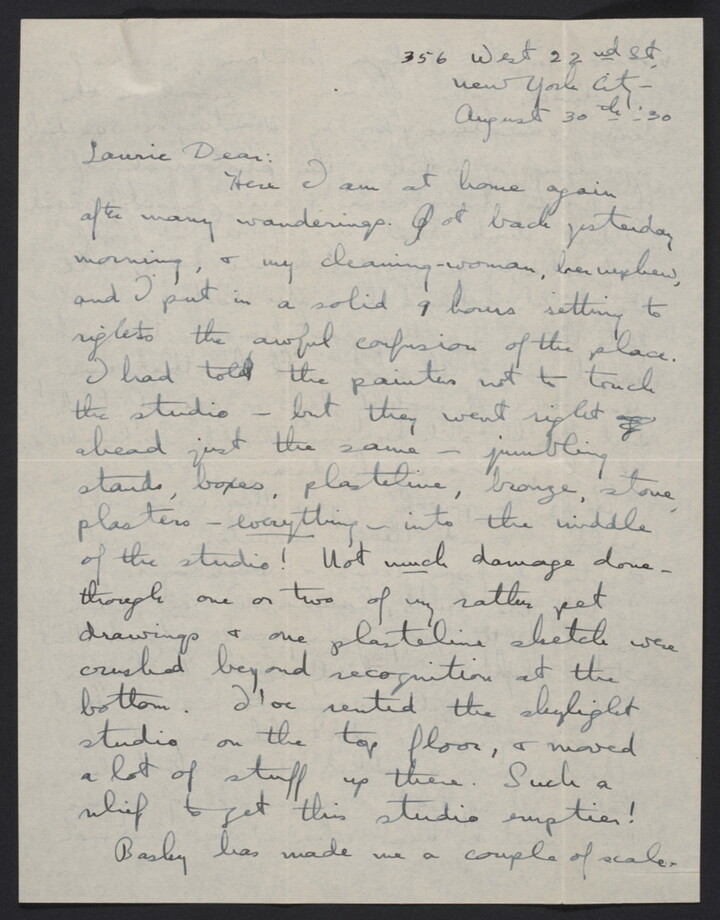 356 West 22nd St.
New York City -
August 30th '30
Laurie Dear:
Here I am at home again
after many wanderings. Got back yesterday
morning, & my cleaning-woman, her nephew,
and I put in a solid 9 hours setting to
rights the awful confusion of the place.
I had told the painters not to touch
the studio - but they went right
ahead just the same - jumbling
stands, boxes, plasteline, bronze, stone,
plasters - everything - into the middle
of the studio! Not much damage done -
though one or two of my rather pet
drawings & one plasteline sketch were
crushed beyond recognition at the
bottom. I've rented the skylight
studio on the top floor, & moved
a lot of stuff up there. Such a
relief to get this studio emptier!
Basky has made me a couple of scale-